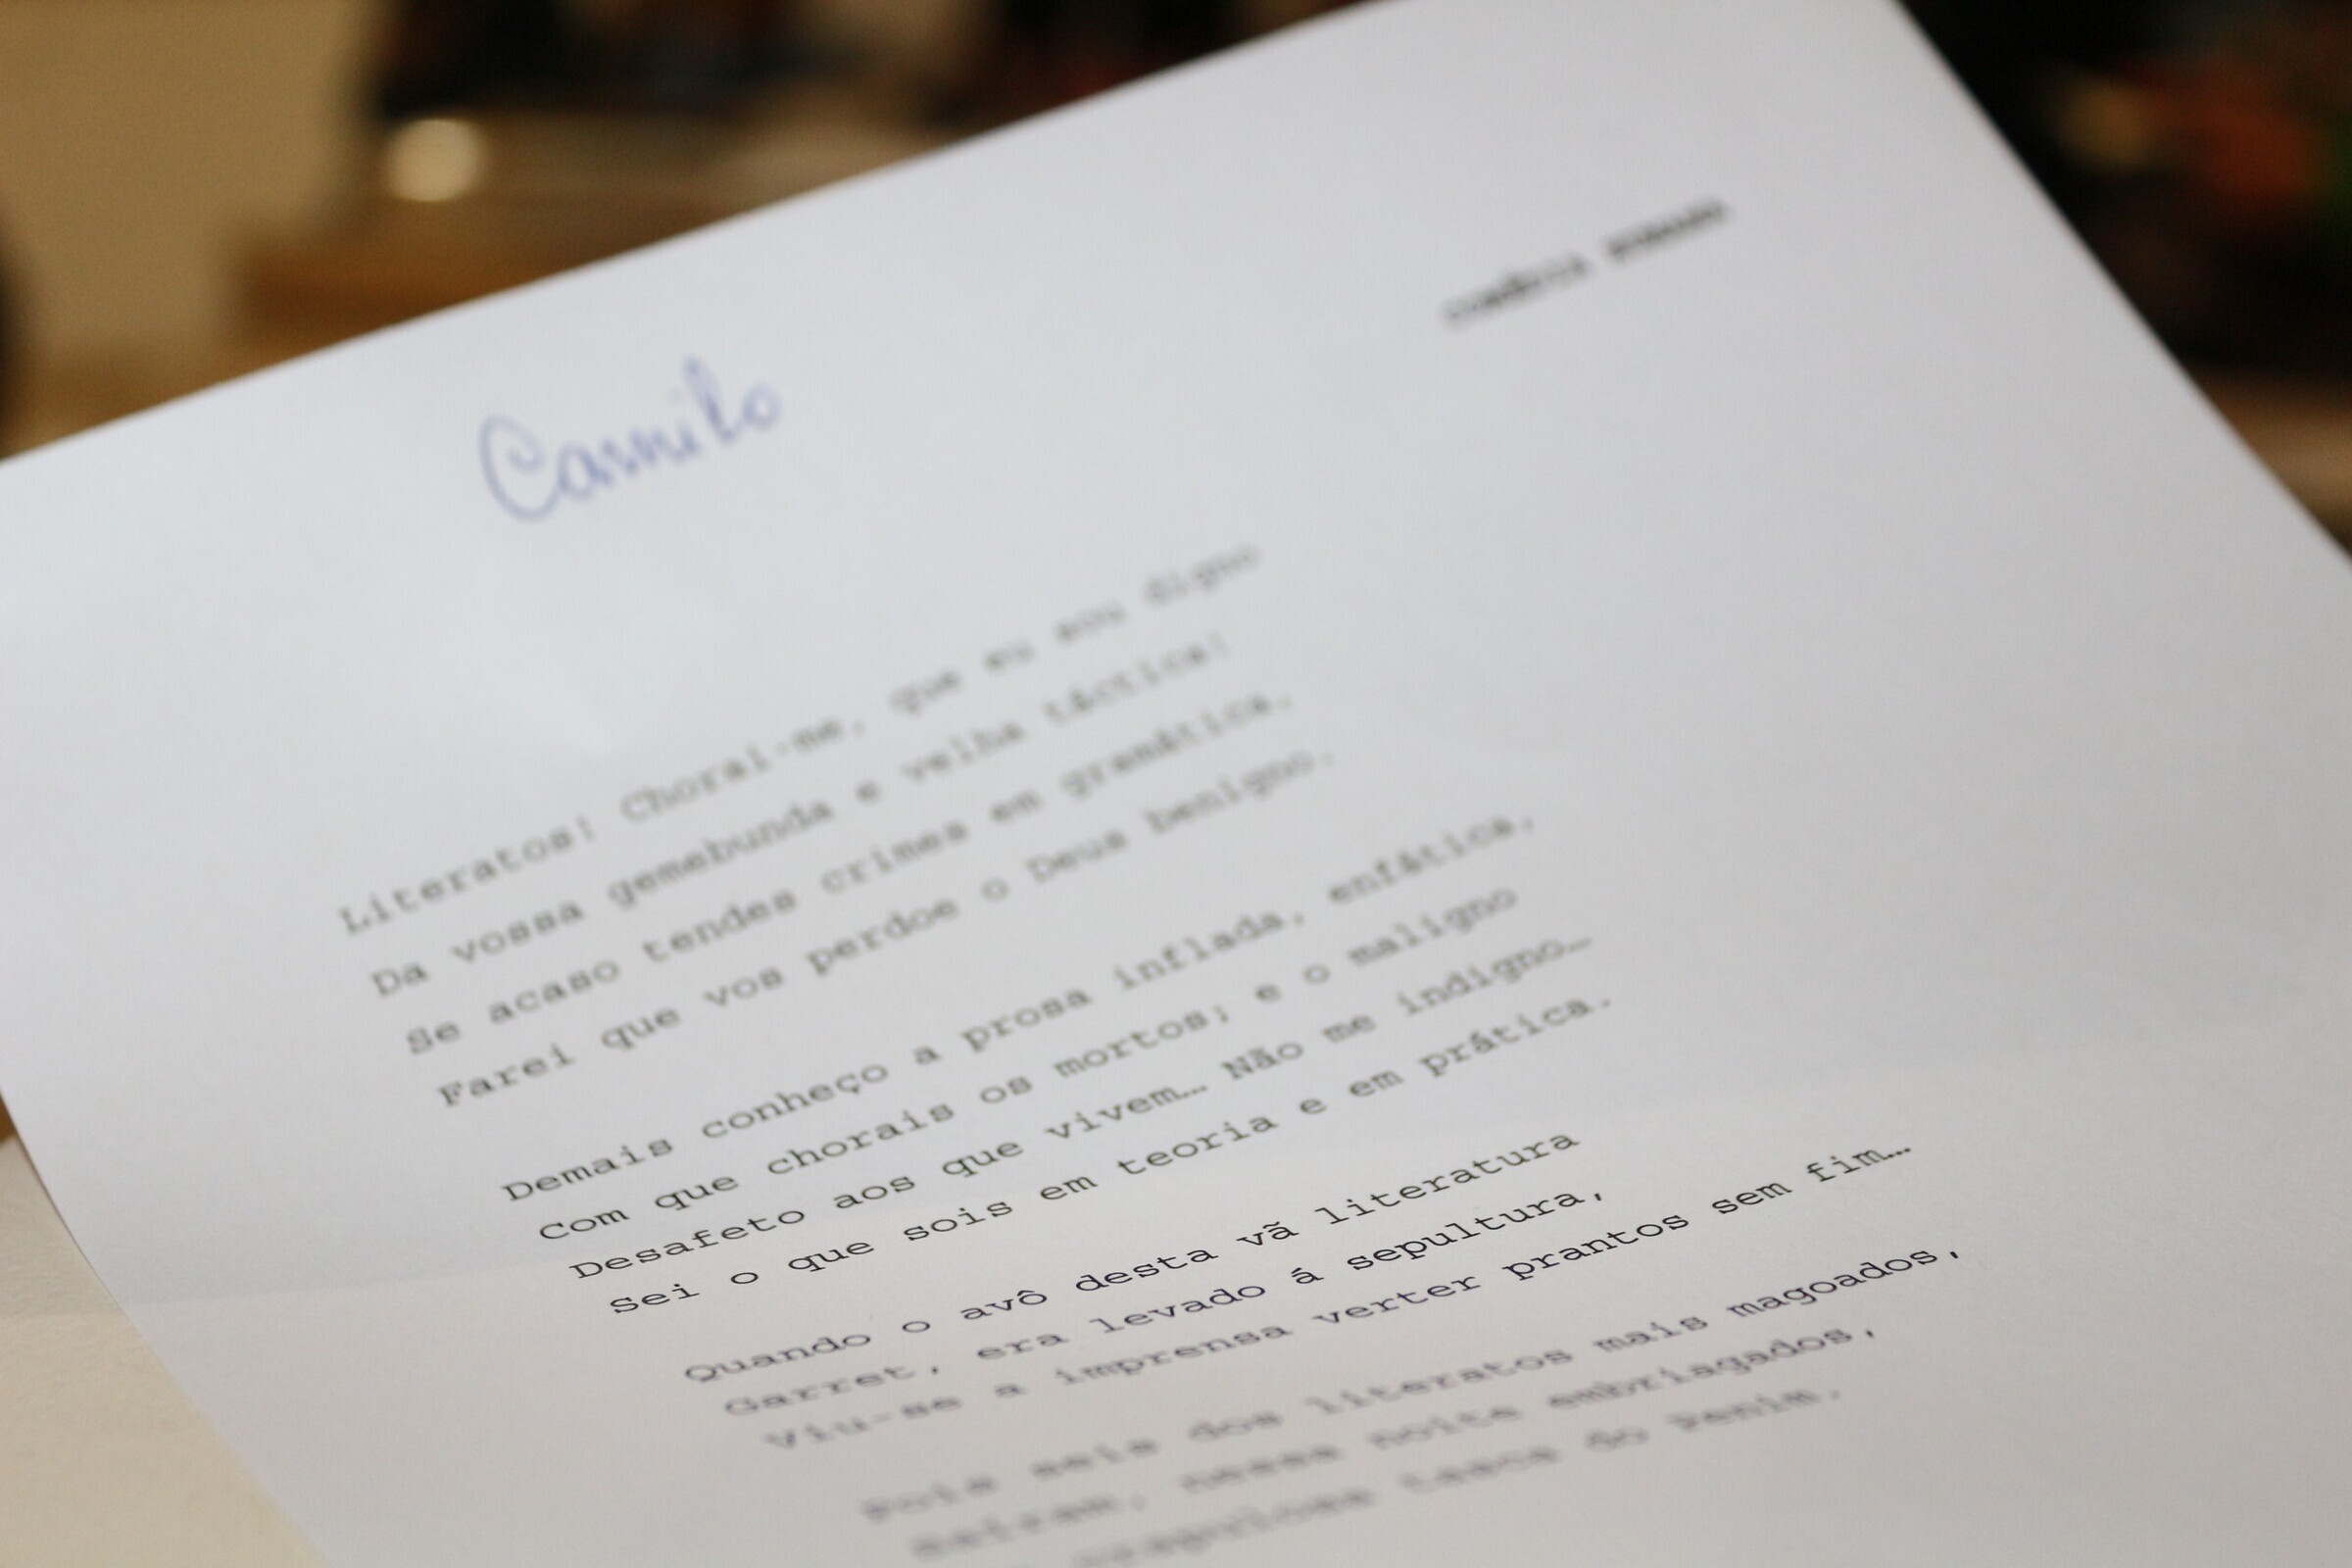 Camilo
Literatos! Chorai-me, que eu sou digno
Da vossa gemebunda e velha táctica!
Se acaso tendes crimes em gramática,
Farei que vos perdoe o Deus benigno.
Demais conheço a prosa inflada, enfática,
Com que chorais os mortos; e o maligno
Desafeto aos que vivem… Não me indigno…
Sei o que sois em teoria e em prática.
Quando o avô desta vã literatura
Garret, era levado á sepultura,
Viu-se a imprensa verter prantos sem fim…
Pois seis dos literatos mais magoados,
Saíram, nessa noite embriagados,
tasca do Penim.